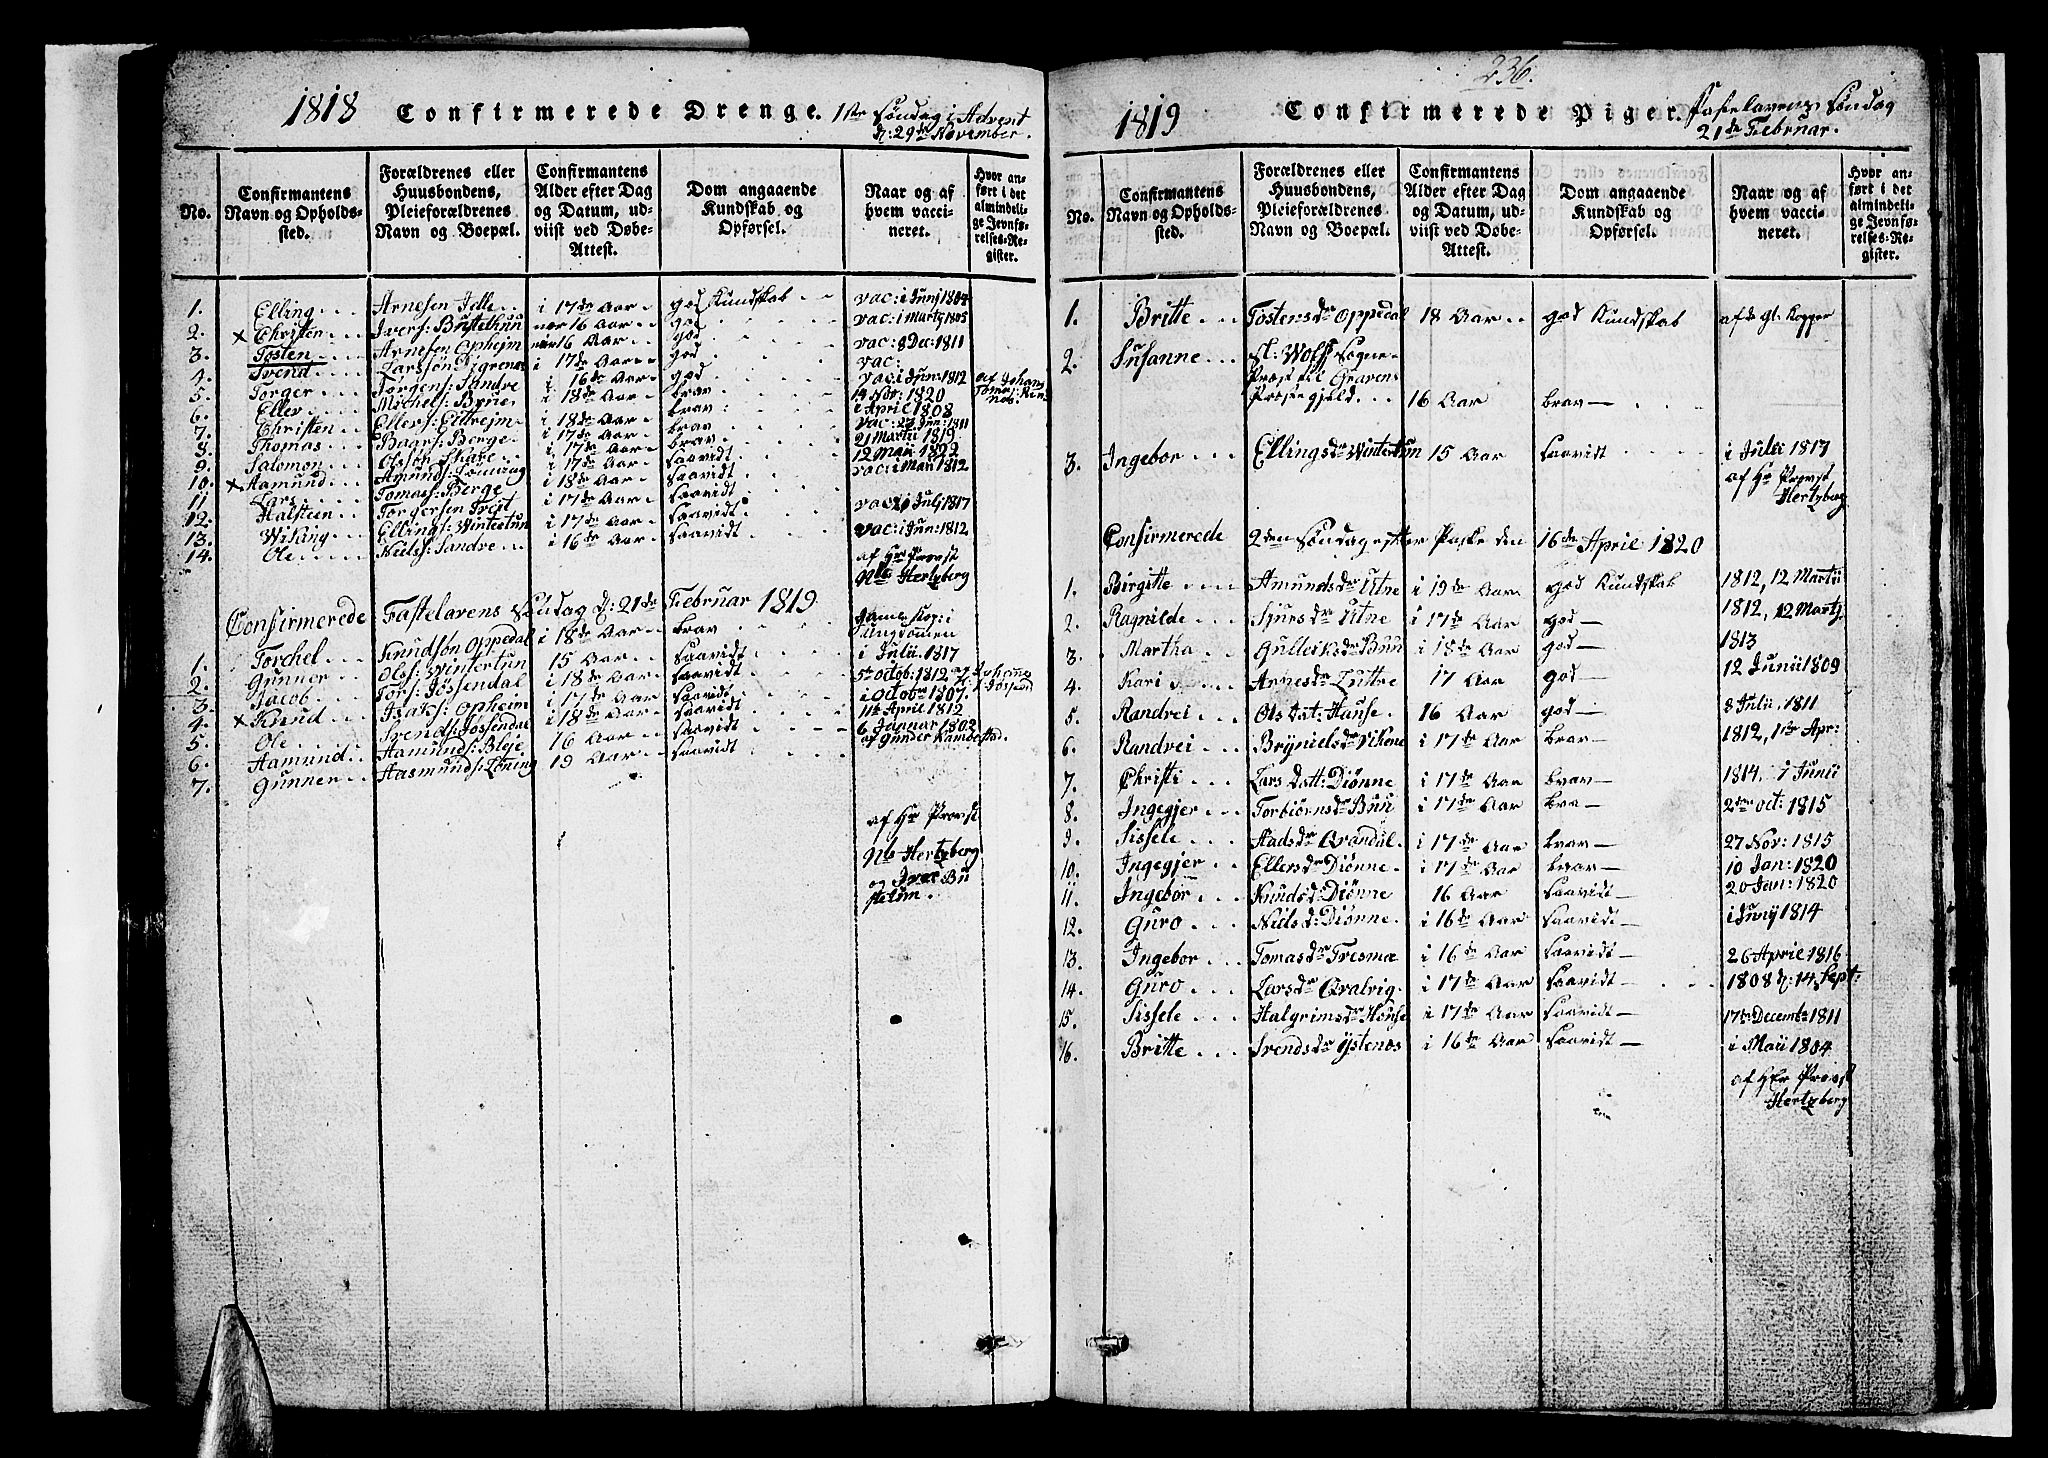 1818 Confirmerede Drenge. 1ste Søndag i Advent
d: 29de November.
No.
Confirmantens Navn og Opholds-sted.
Forældrenes eller Huusbondens, Pleieforældrenes Navn og Boepæl.
Confirmantens Alder efter Dag og Datum, ud-viist ved Døbe-Attest.
Dom angaaende Kundskab og Opførsel.
Naar og af hvem vacci-neret.
Hvor an-ført i det almindeli-ge Jevnfø-relses-Re-gister.
1. Elling Arnesen Jdle i 17de Aar god Kundskab vac: i Junj 1804
2. × Christen Ivers: Büstethün nær 16 Aar god vac: i Martz 1805
3. Tosten Arnesen Opheim nær 16 Aar god vac: 8 Dec: 1811
4. Svend Larssøn Digrenes i 17de Aar god vac:
5. Torger Jørgens: Sandre i 16de Aar god vac: i Jun: 1812 af Johans
6. Eller Michels: Brüe i 18de Aar brav 14 Nov: 1820
7. Christen Ellers: Eittreim i 18de Aar brav i April 1808
8. Thomas Baars: Berge i 17de Aar brav vac: 27 Jun: 1811
9. Salomon Olssøn Skare i 17de Aar brav 21 Martii 1819
10. × Aamund Amunds: Jønning i 17de Aar saavidt 12 Maii 1822
11 Lars Tomass: Berge i 18de Aar saavidt vac: i Maii 1812
12. Halsteen Torgersen Freit i 17de Aar saavidt
13. Wiking Ellings: Wintertun i 17de Aar saavidt vac: i Julj 1817
14. Ole Niels: Sandve i 16de Aar saavidt vac: i Jun: 1812
af Hr Provst
Nls Hertzberg
Confirmerede Fastelavens Søndag d: 21de Februar 1819
1. Torchel Knudsøn Oppedal i 18de Aar brav gamle Kop: i Ungdommen
2. Gunner Ols: Wintertun 15 Aar saavidt i Julii 1817
3. Jacob Tors: Jøssendal i 18de Aar saavidt 5te Octob: 1812
4. × Knud Isaks: Opheim i 17de Aar saavidt i Octobr 1807.
5. Ole Svends: Jøssendal i 18de Aar saavidt 11te April 1812
6. Aamund Aamunds: Bleje 16 Aar saavidt 6 Januar 1802
7. Gunner Aasmunds: Løning 19 Aar saavidt af Gunder Rambestad
af Hr Provst
Nls Hertzberg
og Ivar Bü
stetün.
236.
1819 Confirmerede Piger. Fastelavens Søndag
21de Februar.
No.
Confirmantens Navn og Opholds-sted.
Forældrenes eller Huusbondens, Pleieforældrenes Navn og Boepæl.
Confirmantens Alder efter Dag og Datum, ud-viist ved Døbe-Attest.
Dom angaaende Kundskab og Opførsel.
Naar og af hvem vacci-neret.
Hvor an-ført i det almindeli-ge Jevnfø-relses-Re-gister.
1. Britte Tostensdr Oppedal 18 Aar god Kundskab af de gl. Kopper
2. Susanne Sl: Wolff Sogne-
Præst til Gravens
Præstegjeld 16 Aar brav
3. Ingebor Ellingsdr Wintertun 15 Aar saavidt i Julii 1817
af Hr Provst
Hertzberg
Confirmerede 2den Søndag efter Paaske den 16de April 1820
1. Birgitte Amundsdr Utne i 19de Aar god Kundskab 1812, 12 Martii
2. Ragnilde Sjursdr Utne i 17de Aar god 1812, 12 Martj
3. Martha Gulleiksdr Buu i 18de Aar god 1813
4. Kari Arnesdr Luttre 17 Aar god 12 Junii 1809
5. Randvei Ols Dat: Hause 16 Aar god 8 Julii, 1811
6. Randvei Brynielsdr Vikene i 17de Aar brav 1812, 1ste Apr:
7. Christi Lars Datt: Diønne i 17de Aar brav 1814, i Junii
8. Ingegjer Torbiørnsdr Buu i 17de Aar bra 2den oct: 1815
9. Sissele Aadsdr Qvandal i 17de Aar brav 27 Nov: 1815
10. Ingegjer Ellersdr Diønne i 17de Aar brav 10 Jan: 1820
11. Ingebor Knudsd: Diønne 16 Aar saavidt 20 Jan: 1820
12. Guro Nielsd: Diønne i 16de Aar saavidt i Junij 1814
13. Ingebor Tomasdr Tresmæ i 16de Aar saavidt 26 April 1816
14. Guro Larsdr Qvalvig i 17de Aar saavidt 1808 d: 14 Sept:
15. Sissele Halgrimsdr House i 17de Aar saavidt 17de Decembr 1811
16. Britte Svendsdr Ystenæs i 16de Aar saavidt i Maii 1804
af HEr Provst
Hertzberg